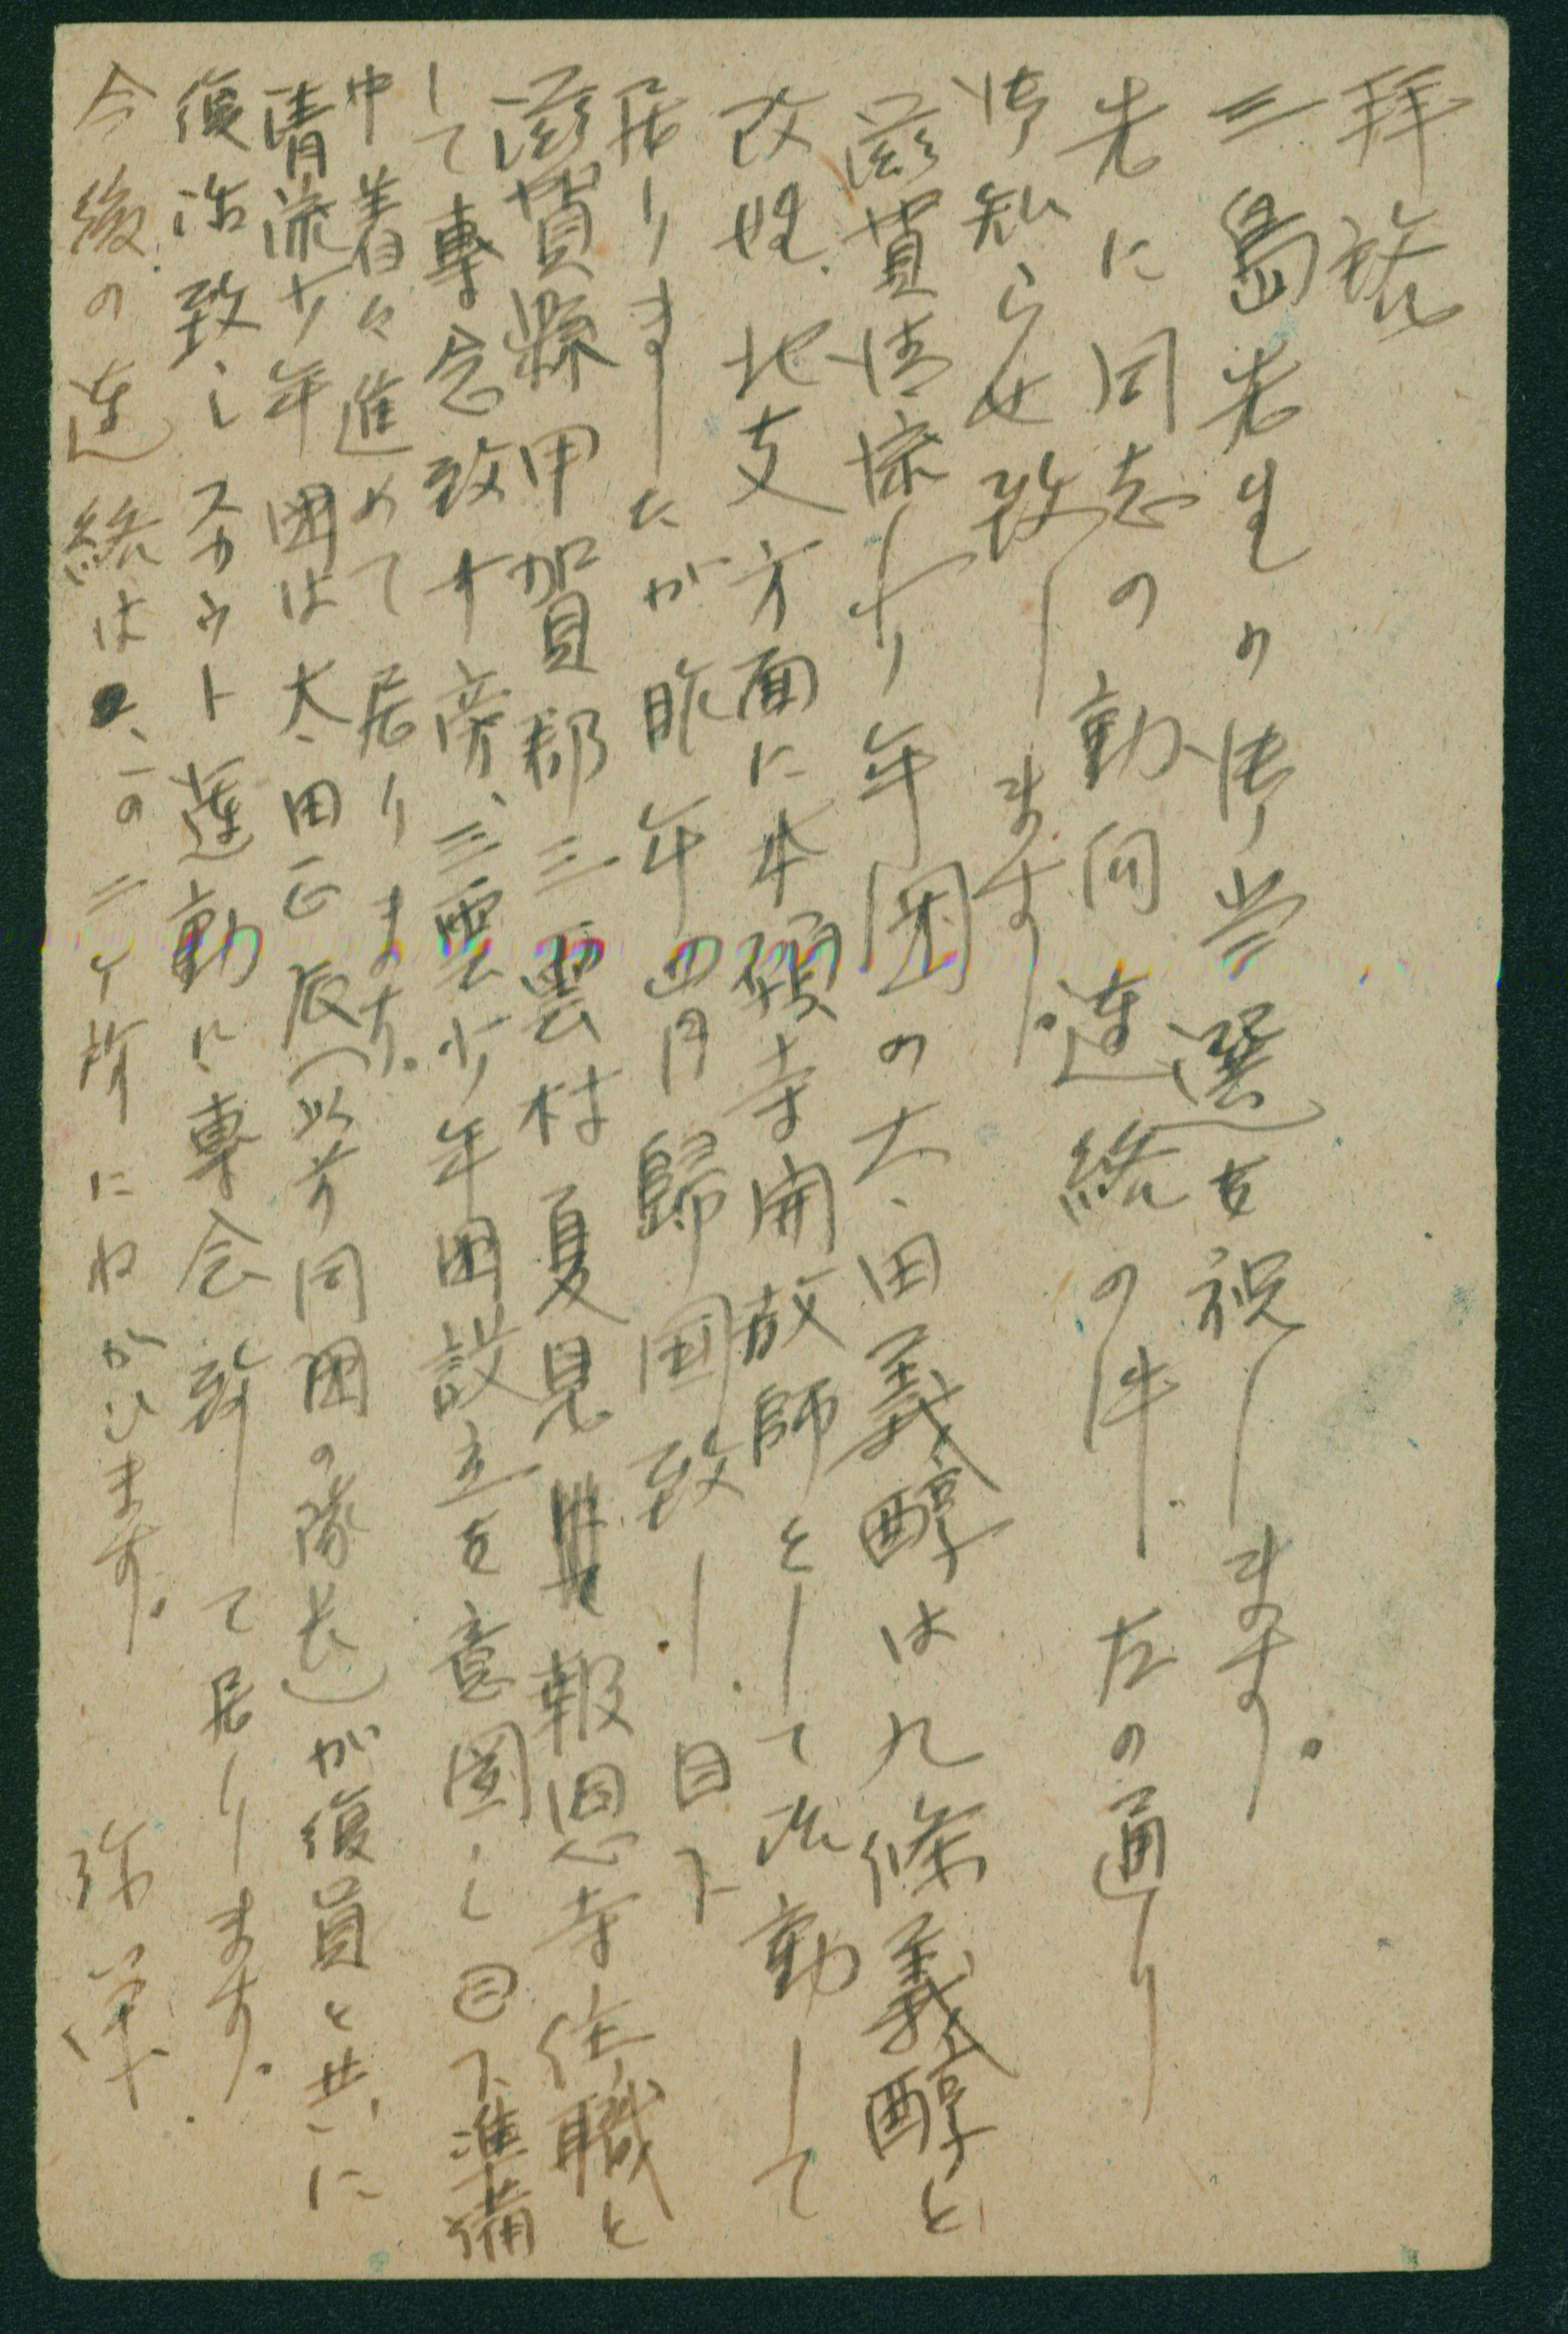 拝啓
三島先生の御当選を祝します。
先に同志の動向連絡の件、左の通り
御知らせ致します。
滋賀清流少年団の太田義醇は九條義醇と
改姓、北支方面に本願寺開教師として活動して
居りましたが昨年四月歸国致し、目下
滋賀縣甲賀郡三雲村夏見 報恩寺住職と
して專念致す旁、三雲少年団設立を意図し目下準備
中着々進めて居ります。
清流少年団は太田正辰(以前同団の隊長)が復員と共に
復活致しスカウト運動に專念致して居ります。
今後の連絡は、この二ヶ所にねがひます。 弥栄